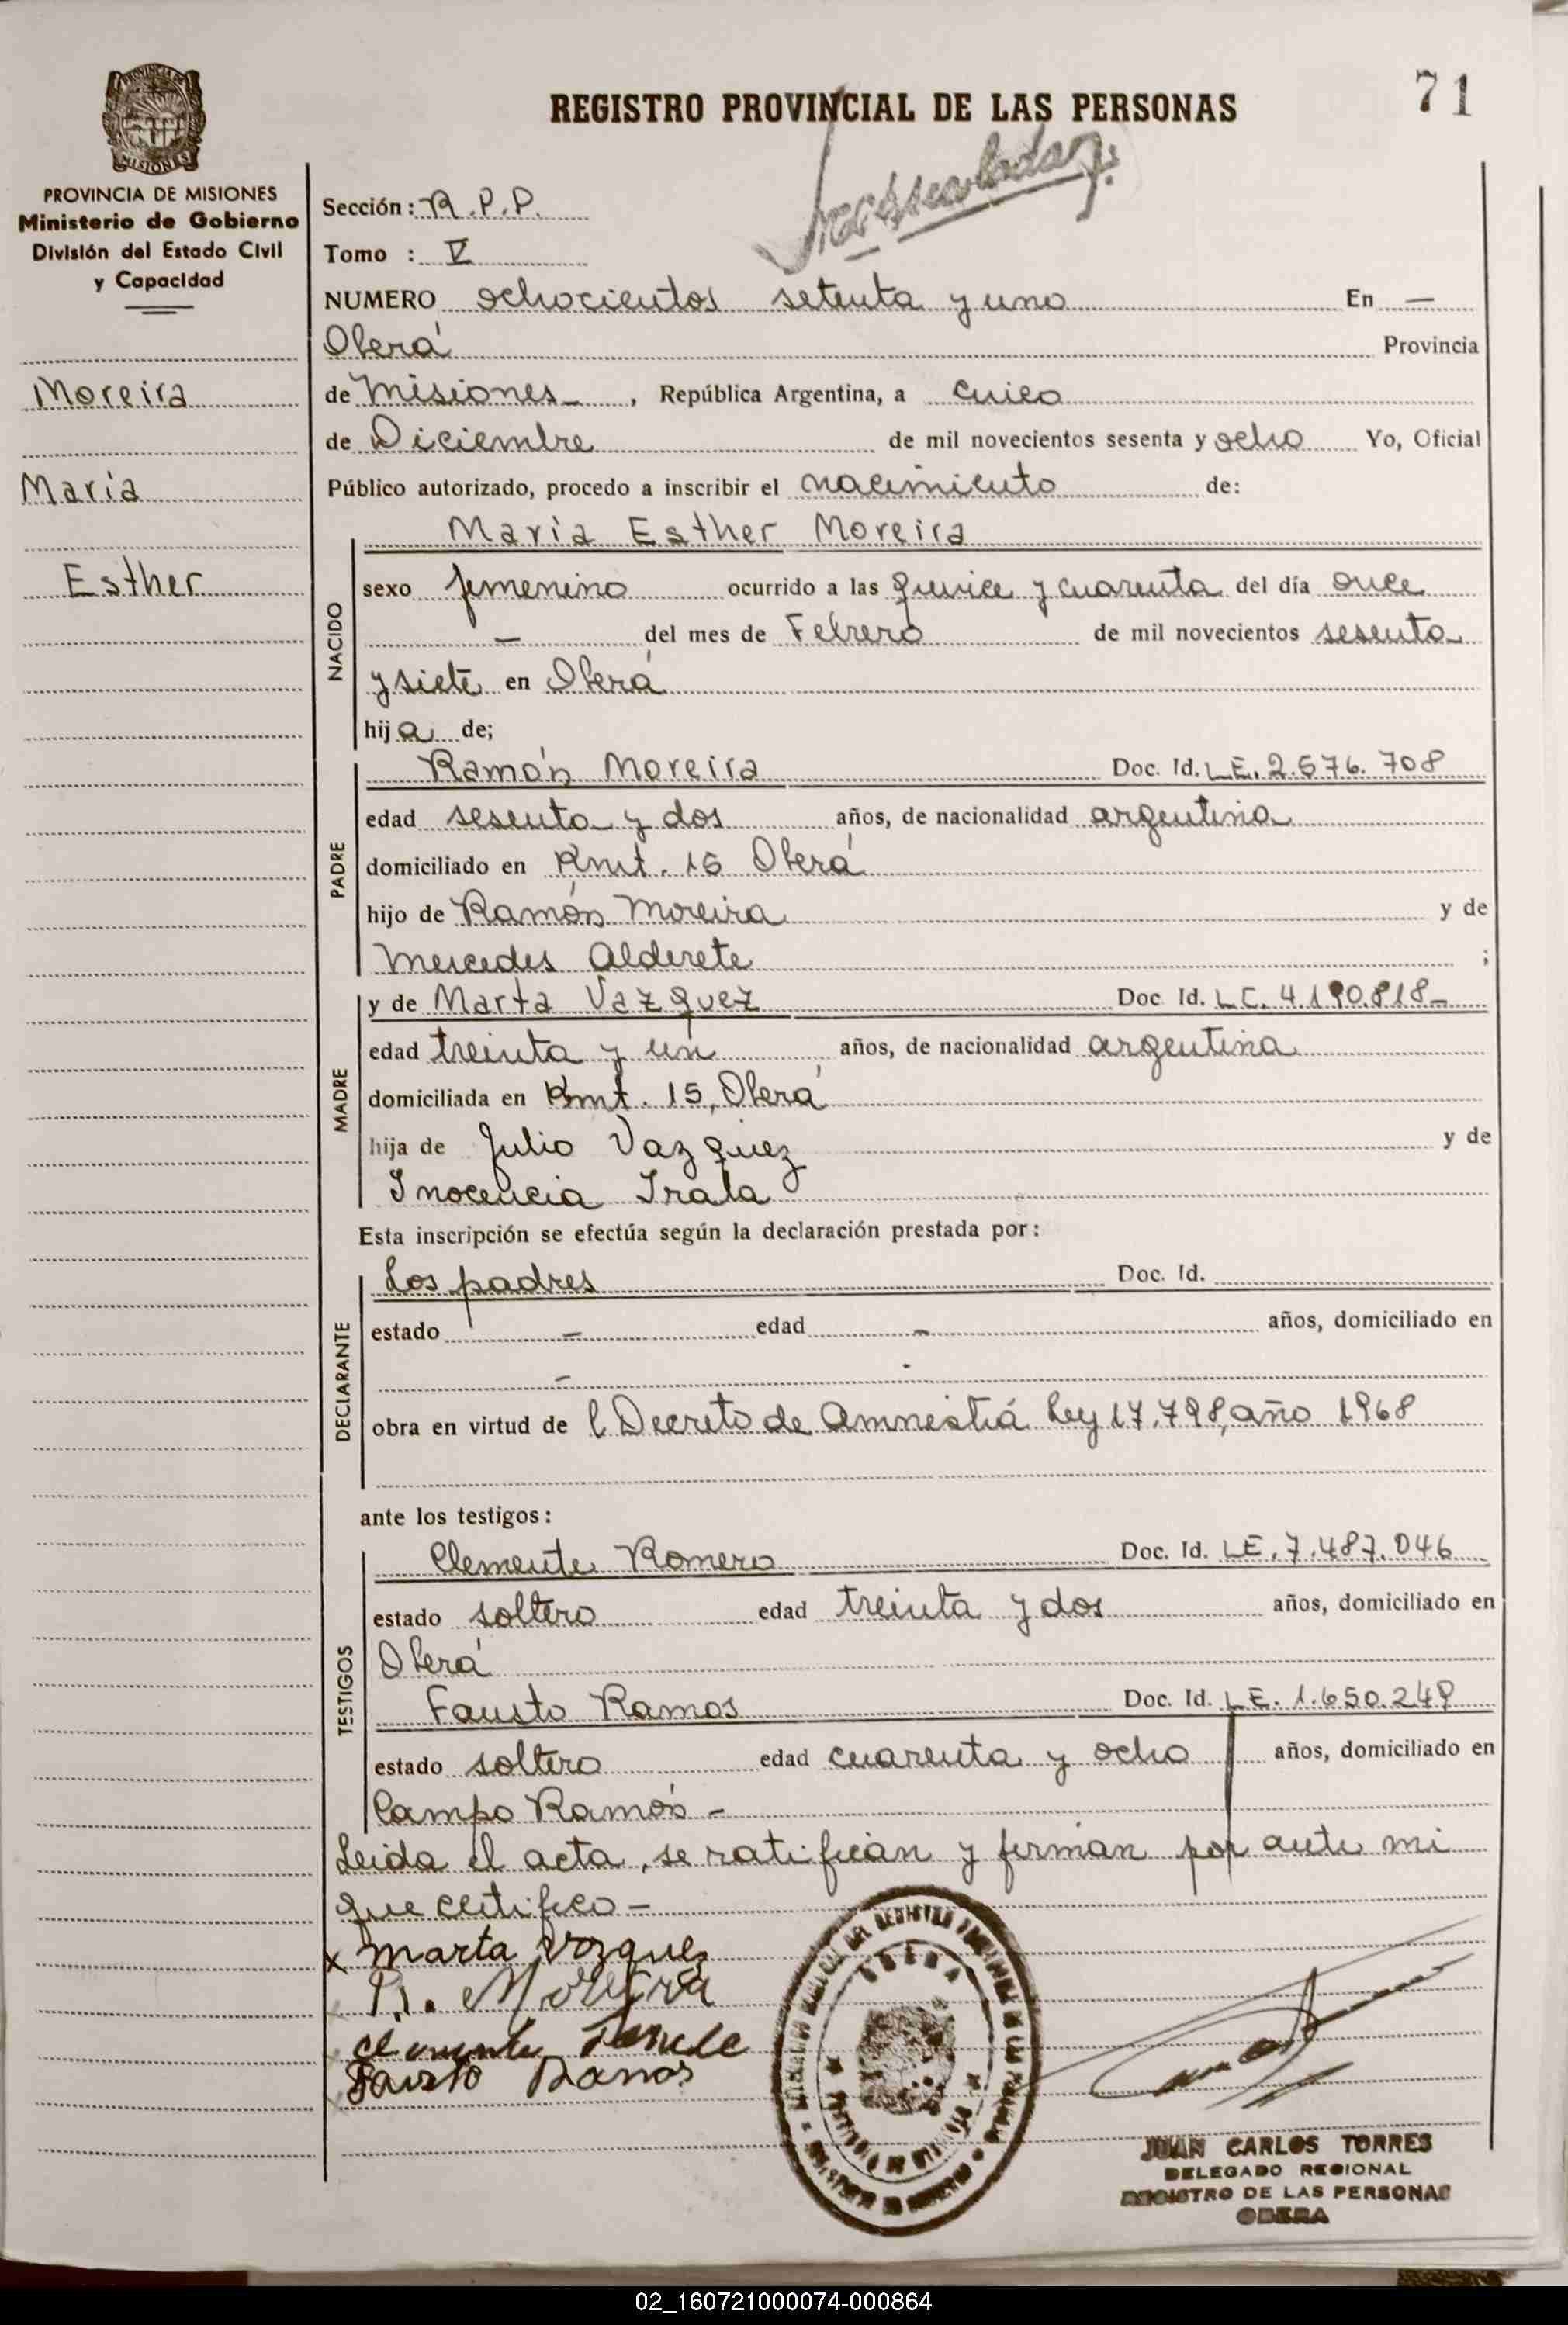 REGISTRO PROVINCIAL DE LAS PERSONAS
71
PROVINCIA DE
MISIONES
PROVINCIA DE MISIONES
Ministerio de Gobierno
División del Estado Civil
y Capacidad
Moreira
María
Esther
Sección: R.P.P.
Tomo : V
NUMERO ochocientos setenta y uno En —
Oberá Provincia
de Misiones , República Argentina, a cinco
de Diciembre de mil novecientos sesenta y ocho Yo, Oficial
Público autorizado, procedo a inscribir el nacimiento de:
María Esther Moreira
NACIDO
sexo femenino ocurrido a las quince y cuarenta del día once
— del mes de Febrero de mil novecientos sesenta
y siete en Oberá
hija de;
PADRE
Ramón Moreira Doc. Id. L.E. 2.576.708
edad sesenta y dos años, de nacionalidad argentina
domiciliado en Kmt. 15 Oberá
hijo de Ramón Moreira y de
Mercedes Alderete ;
MADRE
y de Marta Vazquez Doc Id. L.C. 4.190.818-
edad treinta y un años, de nacionalidad argentina
domiciliada en Kmt. 15, Oberá
hija de Julio Vazquez y de
Inocencia Irala
Esta inscripción se efectúa según la declaración prestada por:
DECLARANTE
Los padres Doc. Id.
estado — edad — años, domiciliado en
—
obra en virtud de l Decreto de Amnestiá Ley 17.798, año 1968
ante los testigos:
TESTIGOS
Clemente Romero Doc. Id. LE. 7.487.046
estado soltero edad treinta y dos años, domiciliado en
Oberá
Fausto Ramos Doc. Id. LE. 1.650.249
estado soltero edad cuarenta y ocho años, domiciliado en
Campo Ramón -
Leida el acta, se ratifican y firman por ante mi
que certifico -
x Marta Vazquez
R. Moreira
Fausto Ramos
JUAN CARLOS TORRES
DELEGADO REGIONAL
REGISTRO DE LAS PERSONAS
OBERA
02_160721000074-000864